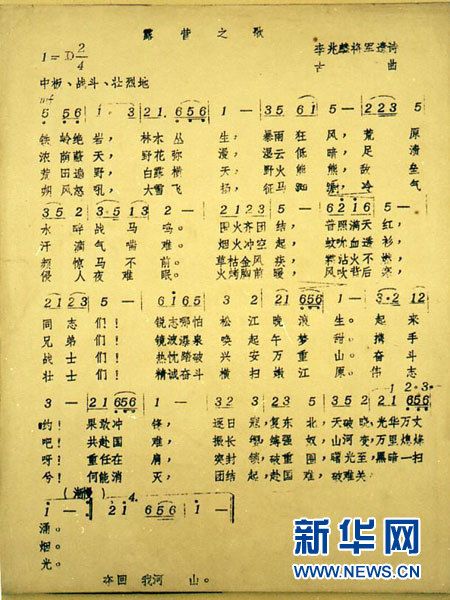 露营之歌
1=D 2/4 李兆麟将军遗诗
古曲
中板、战斗、壮烈地
mf
5 56 1· 3 21 656 1 — 35 61 5 — 2 223 5
铁岭绝岩，林木丛生，暴雨狂风，荒原
浓荫蔽天，野花弥漫，湿云低暗，足渍
荒田遍野，白露横天，野火熊熊，敌垒
朔风怒吼，大雪飞扬，征马踟蹰，冷气
35 2 3·5 13 5 — 21 23 5 — 6 216 5 —
水畔战马鸣。围火齐团结，普照满天红，
汗滴气喘难。烟火冲空起，蚊吮血透衫，
频惊马不前。草枯金风疾，霜沾火不燃，
侵人夜难眠。火烤胸前暖，风吹背后寒，
21 23 5 — 6·1 65 3 2 21 656 1 — 3·2 12
同志们！锐志哪怕松江晚浪生。起来
兄弟们！镜泊瀑泉唤起午梦甜。携手
战士们！热忱踏破兴安万重山。奋斗
壮士们！精诚奋斗横扫嫩江原。伟志
1 2·3
3 — 21 656 1 — 1·2 32 5·3 5 5·3 5 21 656
约！果敢冲锋，逐日寇，复东北，天破晓，光华万丈
吧！共赴国难，振长缨，缚强奴，山河变，万里熄烽
呀！重任在肩，突封锁，破重围，曙光至，黑暗一扫
兮！何能消灭，团结起，赴国难，破难关
（渐慢） 4.
1 — 21 656 1 —
涌。
烟。
光。
夺回 我河 山。
新华网
WWW.NEWS.CN